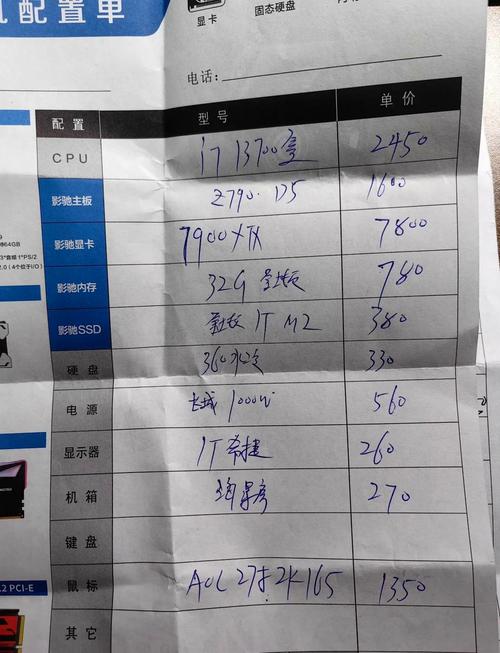 机配置单
显卡
固态硬盘
电话:
配置 型号 单价
CPU i7 13700 2450
影驰主板 Z790 D5 1600
影驰显卡 7900XTX 7800
影驰内存 32G 780
影驰SSD 1T M2 380
硬盘 360水冷 330
电源 长城 1000W 560
显示器 1T 希捷 260
机箱 海景房 270
键盘
鼠标 AOC 27寸 2K 165 1350
其它
64GB
3*音频 1*PS/2
2.0 (4个位于I/O)
.2 PCI-E